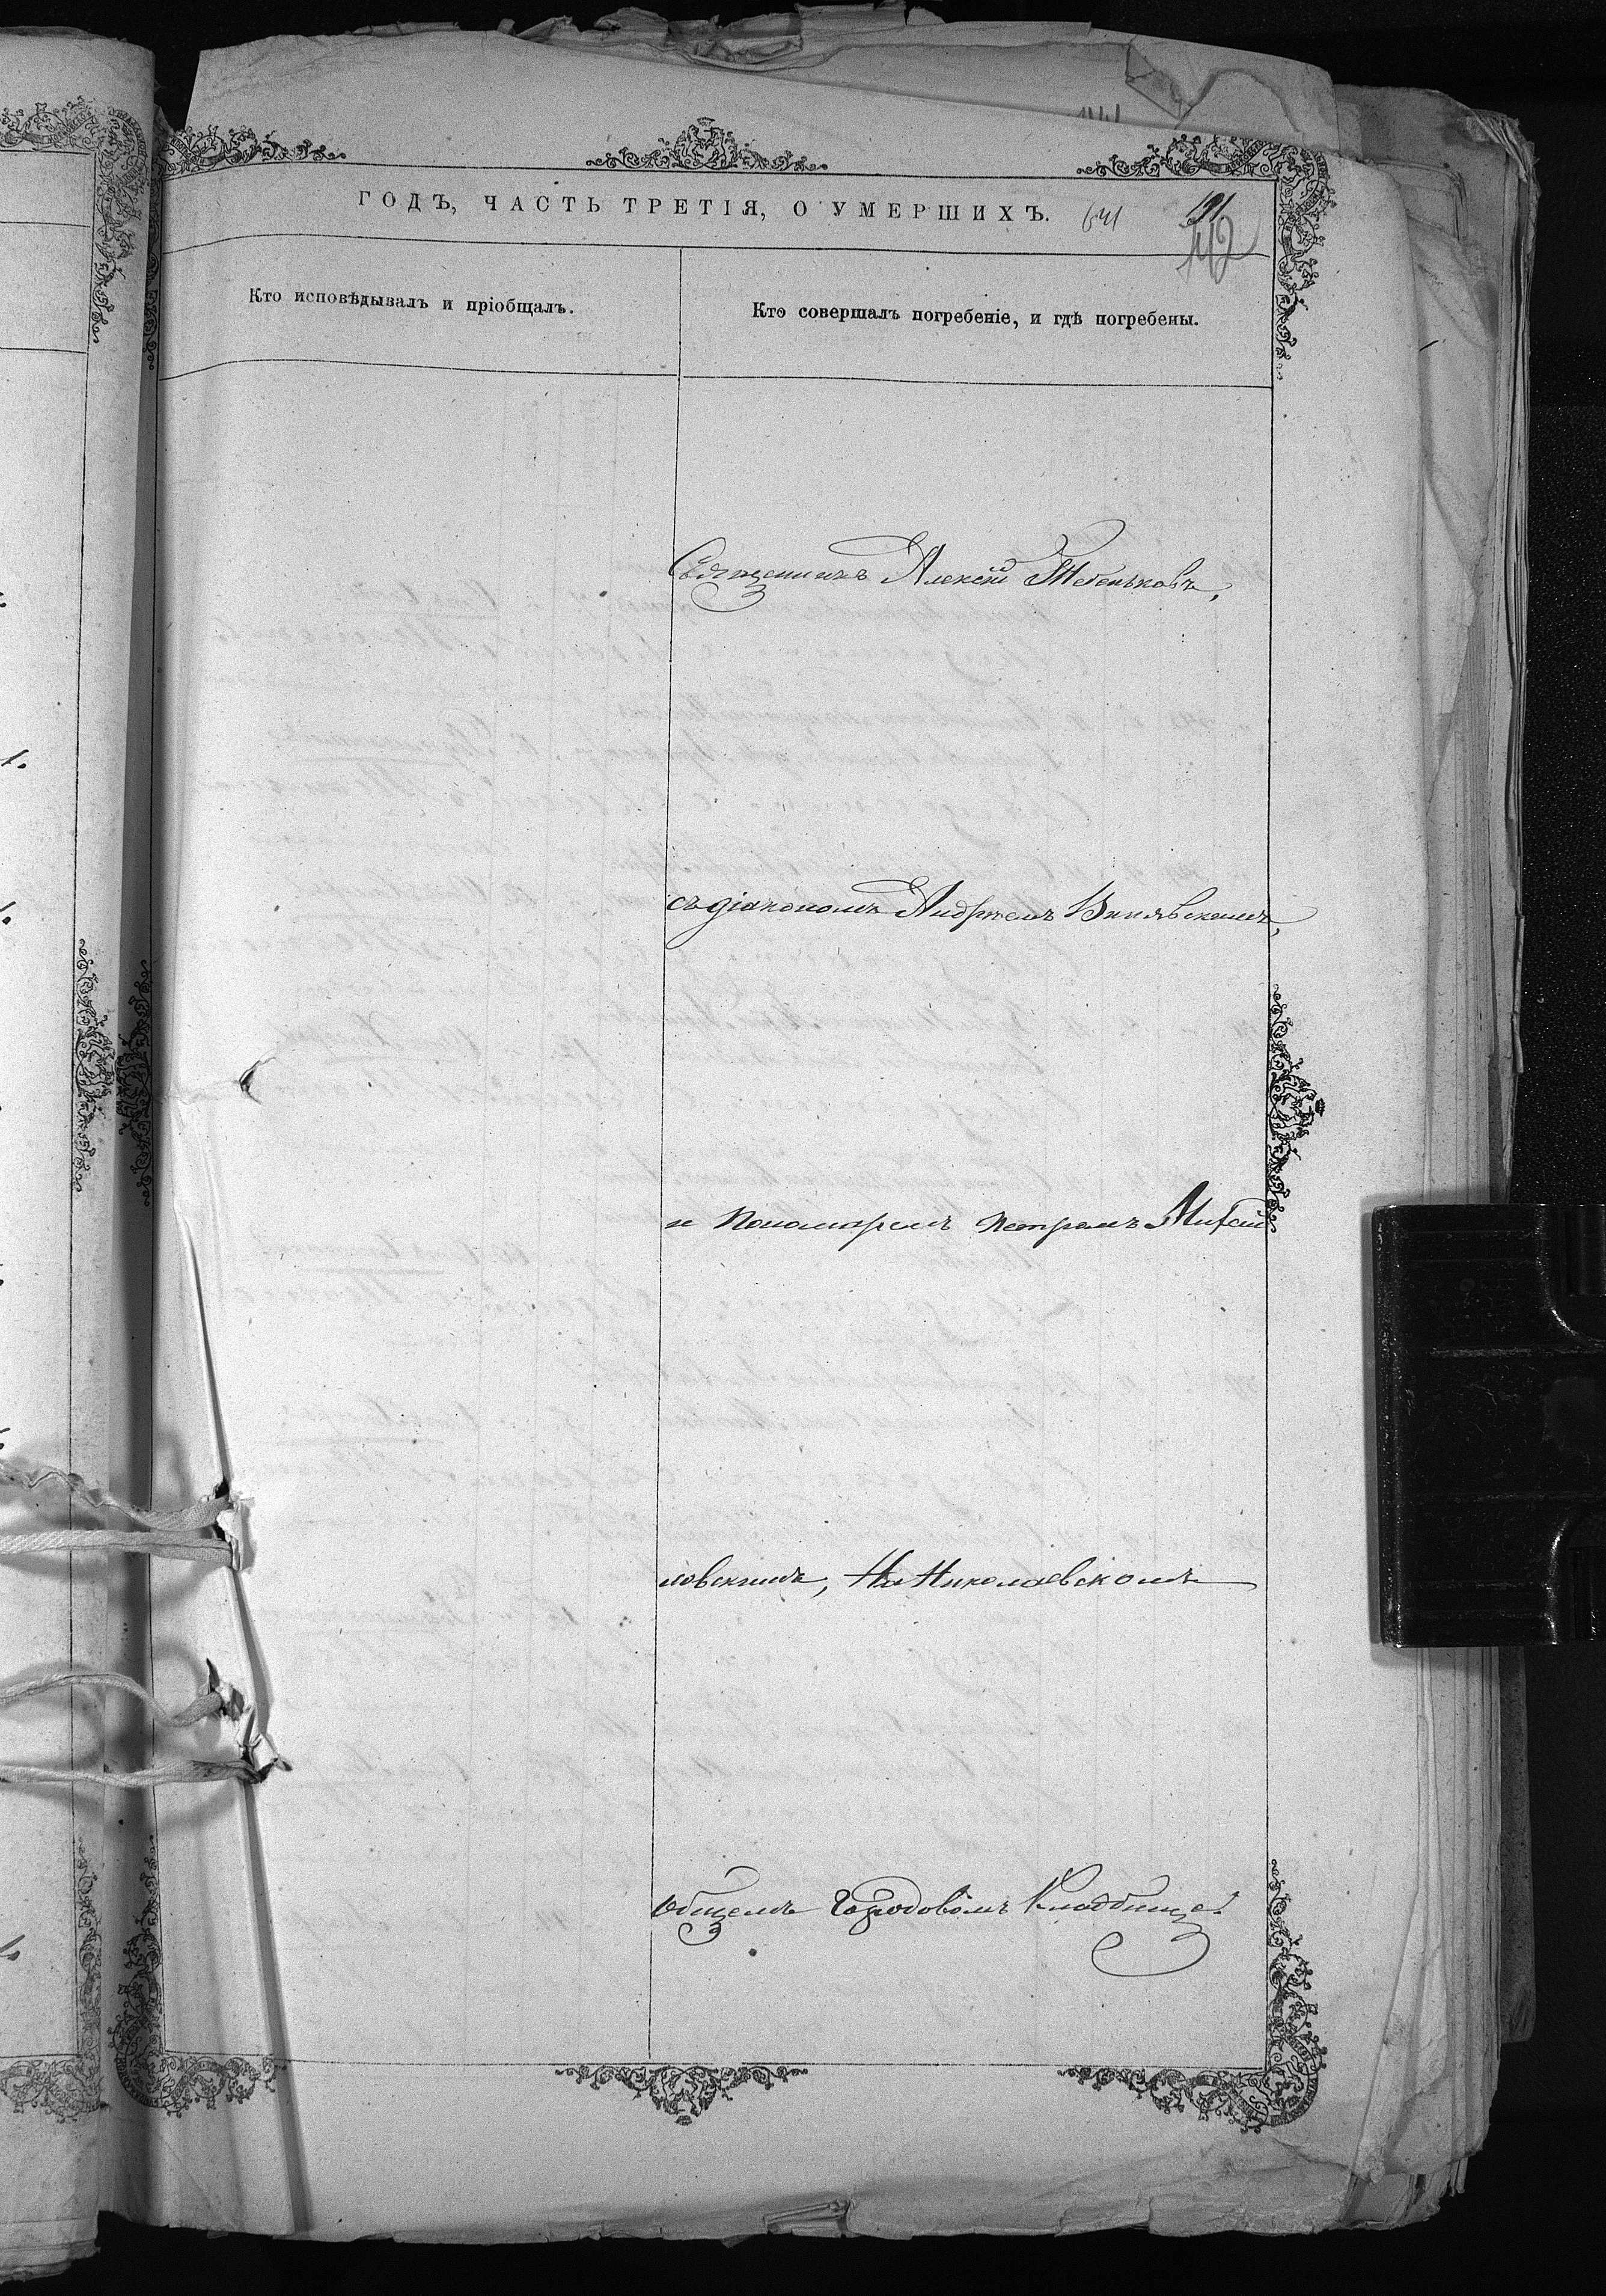 ГОДЪ, ЧАСТЬ ТРЕТІЯ, О УМЕРШИХЪ. 641 191
142
Кто исповѣдывалъ и пріобщалъ.
Кто совершалъ погребеніе, и гдѣ погребены.
Священникъ Алексій Тебеньковъ,
съ діакономъ Андреемъ
и Пономаремъ Петромъ
ловскимъ, На Николаевскомъ
общемъ Городовомъ Кладбище.